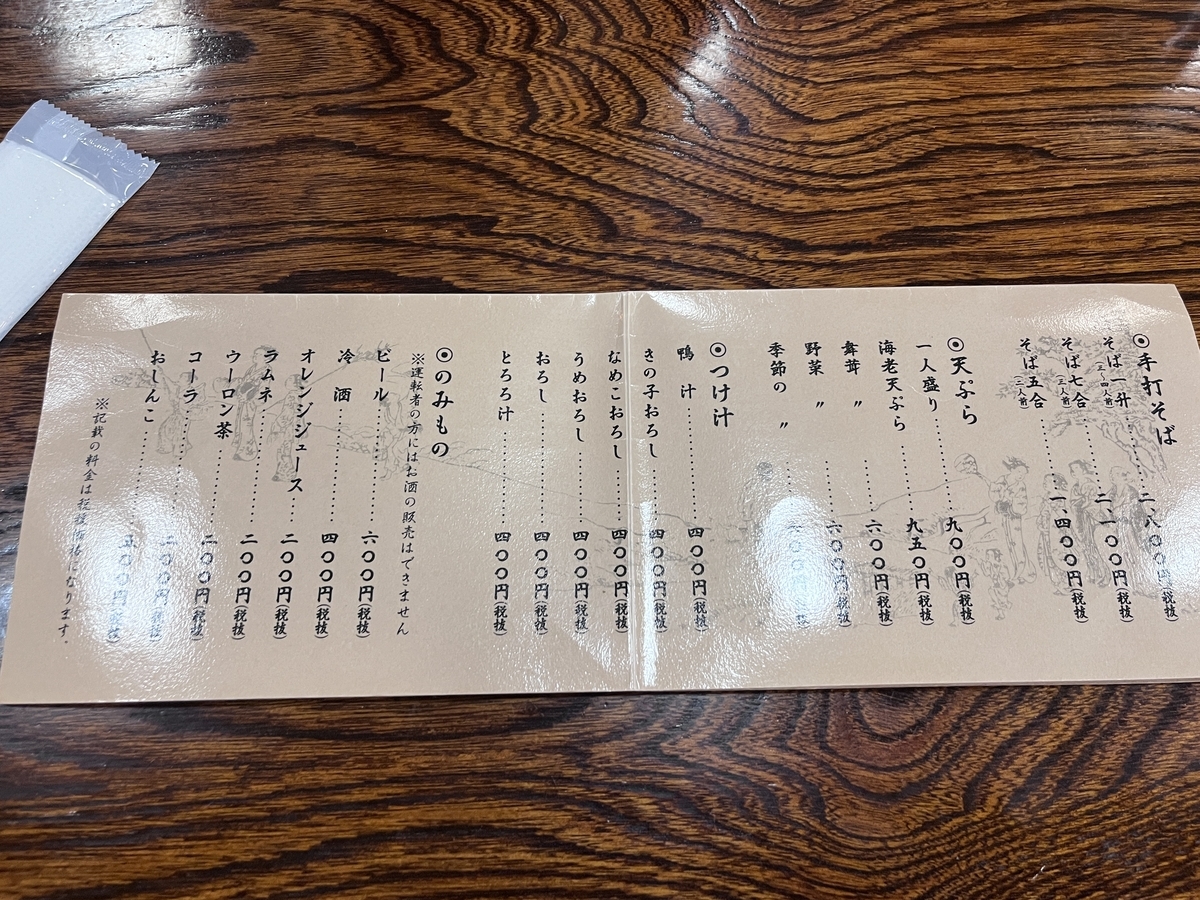 ◉手打そば
そば一升(三〜四人前)……二、八〇〇円(税抜)
そば七合(二、三人前)……二、一〇〇円(税抜)
そば五合(二人前)……一、四〇〇円(税抜)
◉天ぷら
一人盛り……九〇〇円(税抜)
海老天ぷら……九五〇円(税抜)
舞茸 〃……六〇〇円(税抜)
野菜 〃……六〇〇円(税抜)
季節の 〃……
◉つけ汁
鴨汁……四〇〇円(税抜)
きの子おろし……四〇〇円(税抜)
なめこおろし……四〇〇円(税抜)
うめおろし……四〇〇円(税抜)
おろし……四〇〇円(税抜)
とろろ汁……四〇〇円(税抜)
◉のみもの
※運転者の方にはお酒の販売はできません
ビール……六〇〇円(税抜)
冷酒……四〇〇円(税抜)
オレンジジュース……二〇〇円(税抜)
ラムネ……二〇〇円(税抜)
ウーロン茶……二〇〇円(税抜)
コーラ……二〇〇円(税抜)
おしんこ……五〇〇円(税抜)
※記載の料金は税抜価格になります。